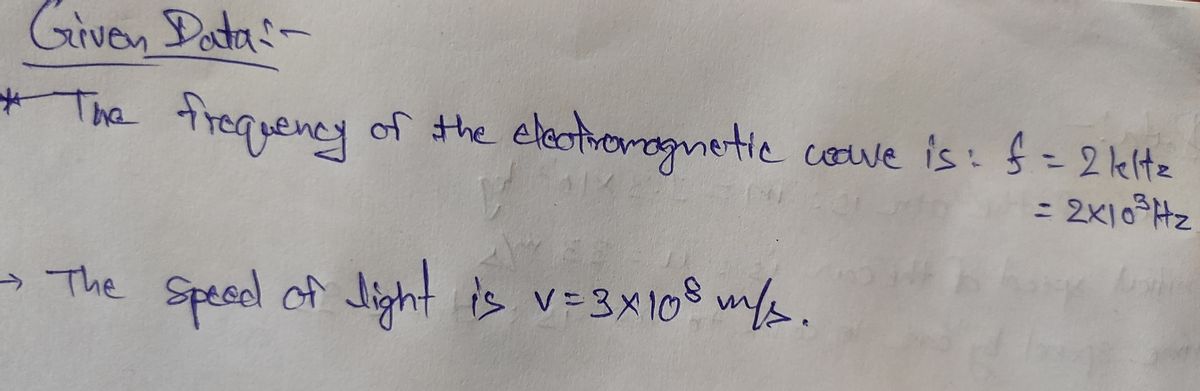 Given Data:-
* The frequency of the electromagnetic wave is: f = 2 kHz
= 2×10³Hz
→ The speed of light is v=3×10⁸ m/s.